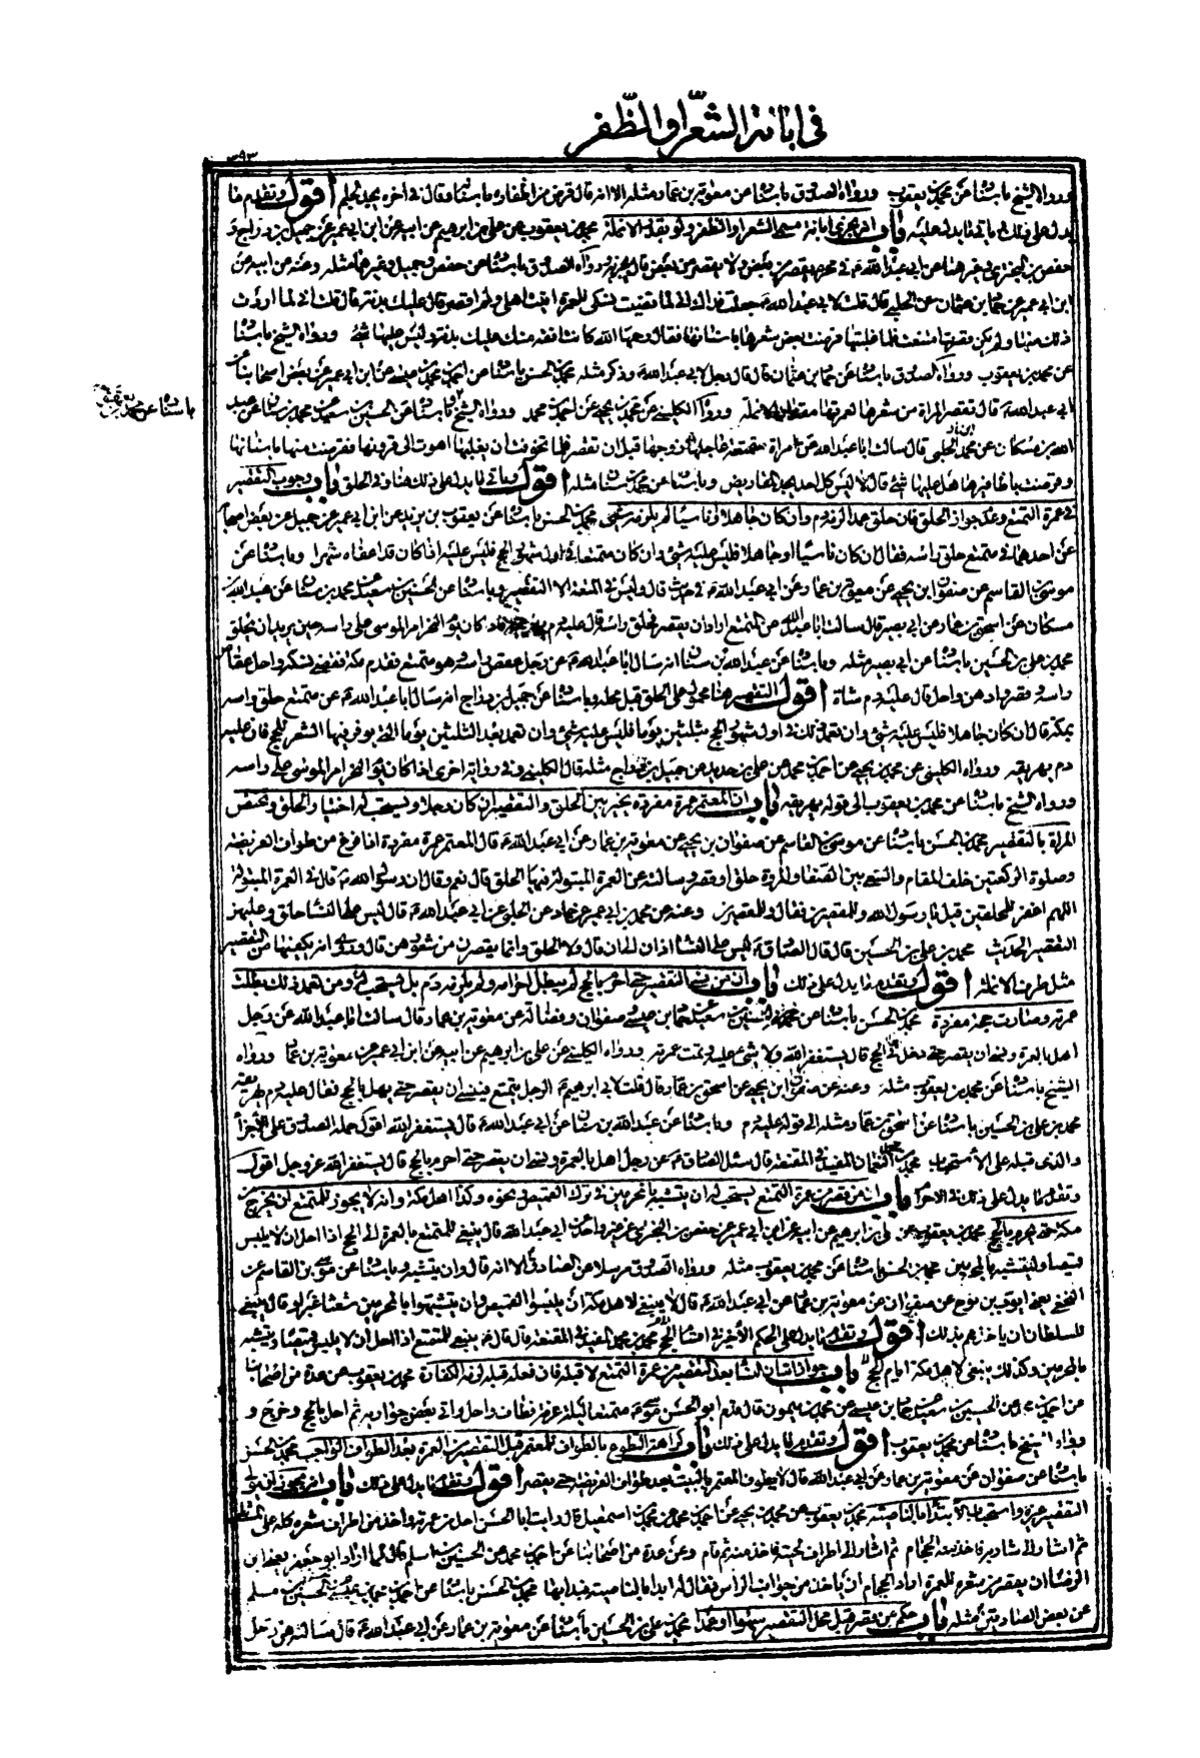 في ابانة الشعر او الظفر
٣٩٣
ورواه الشيخ باسناده عن محمد بن يعقوب ورواه الصدوق باسناده عن معوية بن عمار مثله الا انه قال قرض من اظفاره باسنانه وقال في اخره يجد الجلم اقول وتقدم ما
يدل على ذلك وياتي ما يدل عليه باب انه يجزي ابانة مسمى الشعر او الظفر ولو بقدر الانملة محمد بن يعقوب عن علي بن ابرهيم عن ابيه عن ابن ابي عمير عن جميل بن دراج و
حفص بن البختري وغيرهما عن ابي عبد الله ع في محرم يقصر من بعض ولا يقصر من بعض قال يجزيه ورواه الصدوق باسناده عن حفص وجميل وغيرهما مثله وعنه عن ابيه عن
ابن ابي عمير عن حماد بن عثمان عن الحلبي قال قلت لابي عبد الله ع جعلت فداك اني لما قضيت نسكي للعمرة اتيت اهلي ولم اقصر قال عليك بدنة قال قلت اني لما اردت
ذلك منها ولم يكن قصرت امتنعت فلما غلبتها قرضت بعض شعرها باسنانها فقال رحمها الله كانت افقه منك عليك بدنة وليس عليها شئ ورواه الشيخ باسناده
عن محمد بن يعقوب ورواه الصدوق باسناده عن حماد بن عثمان قال قال رجل لابي عبد الله ع وذكر مثله محمد بن الحسن باسناده عن احمد بن محمد بن عيسى عن ابن ابي عمير عن بعض اصحابنا عن
ابي عبد الله ع قال تقصر المراة من شعرها لعمرتها مقدار الانملة ورواه الكليني عن محمد بن يحيى عن احمد بن محمد ورواه الشيخ باسناده عن الحسين بن سعيد عن محمد بن سنان عن عبد
الله بن مسكان عن محمد الحلبي قال سالت ابا عبد الله ع عن امراة متمتعة عاجلها زوجها قبل ان تقصر فلما تخوفت ان يغلبها اهوت الى قرونها فقرضت منها باسنانها
وقرضت باظافيرها هل عليها شئ قال لا ليس كل احد يجد المقاريض وباسناده عن محمد بن سنان مثله اقول وياتي ما يدل على ذلك هنا وفي الحلق باب وجوب التقصير
في عمرة التمتع وعدم جواز الحلق فان حلق عمدا لزمه دم وان كان جاهلا او ناسيا لم يلزمه شئ محمد بن الحسن باسناده عن يعقوب بن يزيد عن ابن ابي عمير عن جميل عن بعض اصحابنا
عن احدهما ع في متمتع حلق راسه فقال ان كان ناسيا او جاهلا فليس عليه شئ وان كان متمتعا في اول شهور الحج فليس عليه اذا كان قد اعفاه شهرا وباسناده عن
موسى بن القاسم عن صفوان بن يحيى عن معوية بن عمار عن ابي عبد الله ع في حديث قال وليس في المتعة الا التقصير وباسناده عن الحسين بن سعيد عن محمد بن سنان عن عبد الله بن
مسكان عن اسحق بن عمار عن ابي بصير قال سالت ابا عبد الله ع عن المتمتع اراد ان يقصر فحلق راسه قال عليه دم يهريقه فاذا كان يوم النحر امر الموسى على راسه حين يريد ان يحلق
محمد بن علي بن الحسين باسناده عن ابي بصير مثله وباسناده عن عبد الله بن سنان انه سال ابا عبد الله ع عن رجل عقص راسه وهو متمتع فقدم مكة فقضى نسكه وحل عقاص
راسه وقصر وادهن واحل قال عليه دم شاة اقول التقصير هنا محمول على الحلق قبل محله وباسناده عن جميل بن دراج انه سال ابا عبد الله ع عن متمتع حلق راسه
بمكة قال ان كان جاهلا فليس عليه شئ وان تعمد ذلك في اول شهور الحج بثلثين يوما فليس عليه شئ وان تعمد بعد الثلثين يوما التي يوفر فيها الشعر للحج فان عليه
دم يهريقه ورواه الكليني عن محمد بن يحيى عن احمد بن محمد عن علي بن حديد عن جميل بن دراج مثله قال الكليني وفي رواية اخرى اذا كان يوم النحر امر الموسى على راسه
ورواه الشيخ باسناده عن محمد بن يعقوب الى قوله يهريقه باب ان المعتمر عمرة مفردة يخير بين الحلق والتقصير ان كان رجلا ويستحب له اختيار الحلق وتختص
المراة بالتقصير محمد بن الحسن باسناده عن موسى بن القاسم عن صفوان بن يحيى عن معوية بن عمار عن ابي عبد الله ع قال المعتمر عمرة مفردة اذا فرغ من طواف الفريضة
وصلوة الركعتين خلف المقام والسعي بين الصفا والمروة حلق او قصر وسالته عن العمرة المبتولة فيها الحلق قال نعم وقال ان رسول الله ص قال في العمرة المبتولة
اللهم اغفر للمحلقين قيل يا رسول الله وللمقصرين فقال وللمقصرين وعنه عن محمد بن ابي عمير عن حماد عن الحلبي عن ابي عبد الله ع قال ليس على النساء حلق وعليهن
التقصير الحديث محمد بن علي بن الحسين قال قال الصادق ع ليس على النساء اذان الى ان قال ولا الحلق وانما يقصرن من شعورهن قال وروي انه يكفيها من التقصير
مثل طرف الانملة اقول وتقدم ما يدل على ذلك باب ان من نسي التقصير حتى احرم بالحج لم يبطل احرامه ولم يلزمه دم بل يستحب له ومن تعمد ذلك بطلت
عمرته وصارت حجته مفردة محمد بن الحسن باسناده عن الحسين بن سعيد عن حماد بن عيسى وصفوان وفضالة عن معوية بن عمار قال سالت ابا عبد الله ع عن رجل
اهل بالعمرة ونسي ان يقصر حتى دخل في الحج قال يستغفر الله ولا شئ عليه وتمت عمرته ورواه الكليني عن علي بن ابرهيم عن ابيه عن ابن ابي عمير عن معوية بن عمار ورواه
الشيخ باسناده عن محمد بن يعقوب مثله وعنه عن صفوان بن يحيى عن اسحق بن عمار قال قلت لابي ابرهيم ع الرجل يتمتع فينسى ان يقصر حتى يهل بالحج فقال عليه دم يهريقه
محمد بن علي بن الحسين باسناده عن اسحق بن عمار مثله الى قوله عليه دم وباسناده عن عبد الله بن سنان عن ابي عبد الله ع قال يستغفر الله اقول حمله الصدوق على الاجزاء
والذي قبله على الاستحباب محمد بن محمد بن النعمان المفيد في المقنعة قال سئل الصادق ع عن رجل اهل بالعمرة ونسي ان يقصر حتى احرم بالحج قال يستغفر الله عز وجل اقول
وتقدم ما يدل على ذلك في الاحرام باب ان من قصر من عمرة التمتع يستحب له ان يتشبه بالمحرمين في ترك القميص ونحوه وكذا اهل مكة وانه لا يجوز للمتمتع ان يخرج من
مكة حتى يحرم بالحج محمد بن يعقوب عن علي بن ابرهيم عن ابيه عن ابن ابي عمير عن حفص بن البختري عن غير واحد عن ابي عبد الله ع قال ينبغي للمتمتع بالعمرة الى الحج اذا احل ان لا يلبس
قميصا وليتشبه بالمحرمين محمد بن الحسن باسناده عن محمد بن يعقوب مثله ورواه الصدوق مرسلا عن الصادق ع الا انه قال وان يتشبه وباسناده عن موسى بن القاسم عن
النخعي يعني ايوب بن نوح عن صفوان عن معوية بن عمار عن ابي عبد الله ع قال لا ينبغي لاهل مكة ان يلبسوا القميص وان يتشبهوا بالمحرمين شعثا غبرا وقال ينبغي
للسلطان ان ياخذهم بذلك اقول وتقدم ما يدل على الحكم الاخير في اقسام الحج محمد بن محمد المفيد في المقنعة قال قال ع ينبغي للمتمتع اذا احل ان لا يلبس قميصا ويتشبه
بالمحرمين وكذلك ينبغي لاهل مكة ايام الحج باب جواز اتيان النساء بعد التقصير من عمرة التمتع لا قبله فان فعله قبله لزمته الكفارة محمد بن يعقوب عن عدة من اصحابنا
عن احمد بن محمد عن الحسين بن سعيد عن حماد بن عيسى عن محمد بن ميمون قال قدم ابو الحسن موسى ع متمتعا ليلة عرفة فطاف واحل واتى بعض جواريه ثم اهل بالحج وخرج و
رواه الشيخ باسناده عن محمد بن يعقوب اقول وتقدم ما يدل على ذلك باب كراهة التطوع بالطواف للمعتمر قبل التقصير من العمرة بعد الطواف الواجب محمد بن الحسن
باسناده عن صفوان عن معوية بن عمار عن ابي عبد الله ع قال لا يطوف المعتمر بالبيت بعد طواف الفريضة حتى يقصر اقول وتقدم ما يدل على ذلك باب انه يجوز ان يولي
التقصير غيره واستحباب الابتداء بالناصية محمد بن يعقوب عن محمد بن يحيى عن احمد بن محمد عن محمد بن اسمعيل قال رايت ابا الحسن احل من عمرته واخذ من اطراف شعره كله على المشط
ثم اشار الى شاربه فاخذ منه الحجام ثم اشار الى اطراف لحيته فاخذ منه ثم قام وعن عدة من اصحابنا عن احمد بن محمد عن الحسين بن اسلم قال لما اراد ابو جعفر يعني ابن
الرضا ان يقصر من شعره للعمرة اراد الحجام ان ياخذ من جوانب الراس فقال له ابدا بالناصية فبدا بها محمد بن الحسن باسناده عن احمد بن محمد بن عيسى عن الحسين بن مسلم
عن بعض الصادقين مثله باب حكم من عقر قبل محل التقصير سهوا او عمدا محمد بن علي بن الحسين باسناده عن معوية بن عمار عن ابي عبد الله ع قال سالته عن رجل